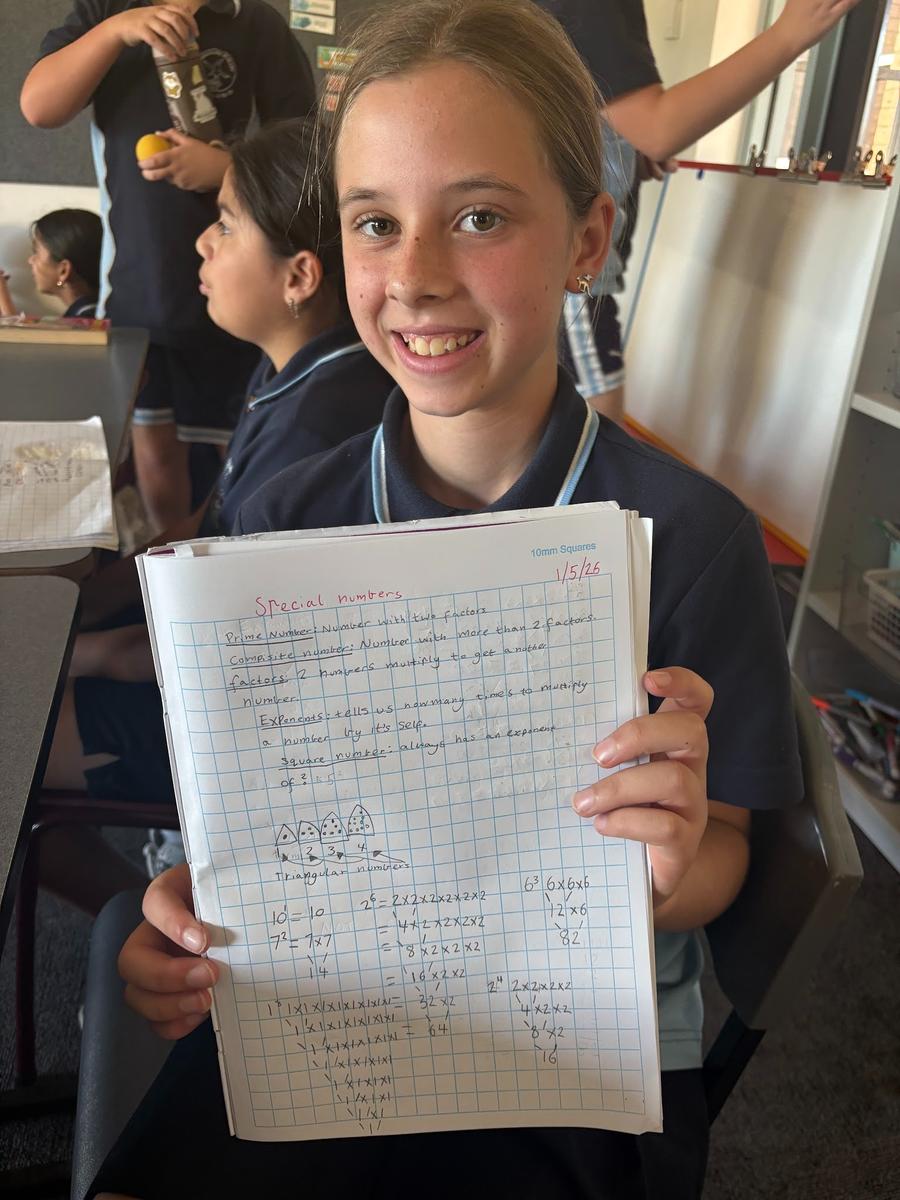 10mm Squares
1/5/26
Special numbers
Prime Number: Number with two factors
Composite number: Number with more than 2 factors.
factors: 2 numbers multiply to get another
number.
Exponents: tells us how many times to multiply
a number by it's self.
Square number: always has an exponent
of 2
1 2 3 4
Triangular numbers
10¹ = 10
7² = 7x7
14
2⁶ = 2x2x2x2x2x2
= 4x2x2x2x2
= 8x2x2x2
= 16x2x2
= 32x2
= 64
6³ 6x6x6
12x6
82
2⁴ 2x2x2x2
4x2x2
8x2
16
1x1x1x1x1x1x1x1
1x1x1x1x1x1x1
1x1x1x1x1x1
1x1x1x1x1
1x1x1x1
1x1x1
1x1
1